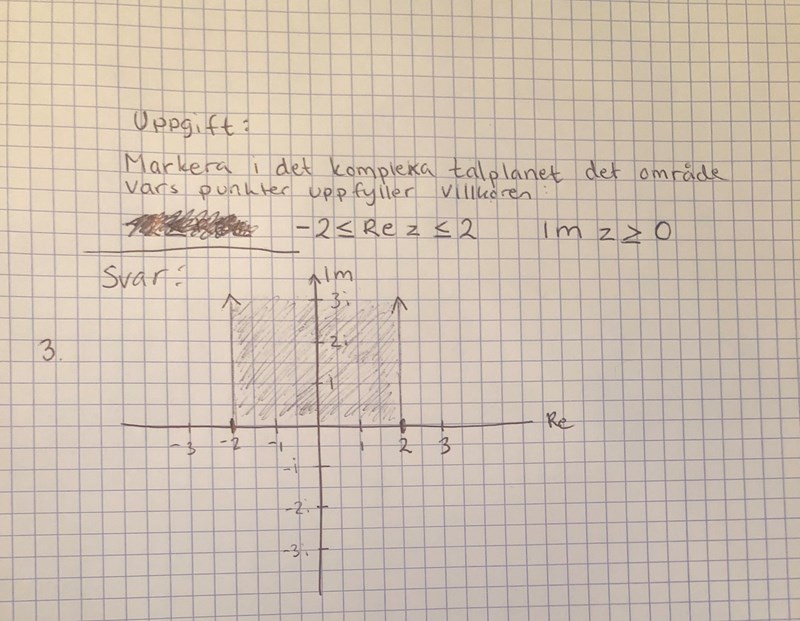 Uppgift:
Markera i det komplexa talplanet det område
vars punkter uppfyller villkoren:
-2 ≤ Re z ≤ 2 Im z ≥ 0
Svar:
Im
3i
3.
2i
1
Re
-3 -2 -1 1 2 3
-i
-2i
-3i